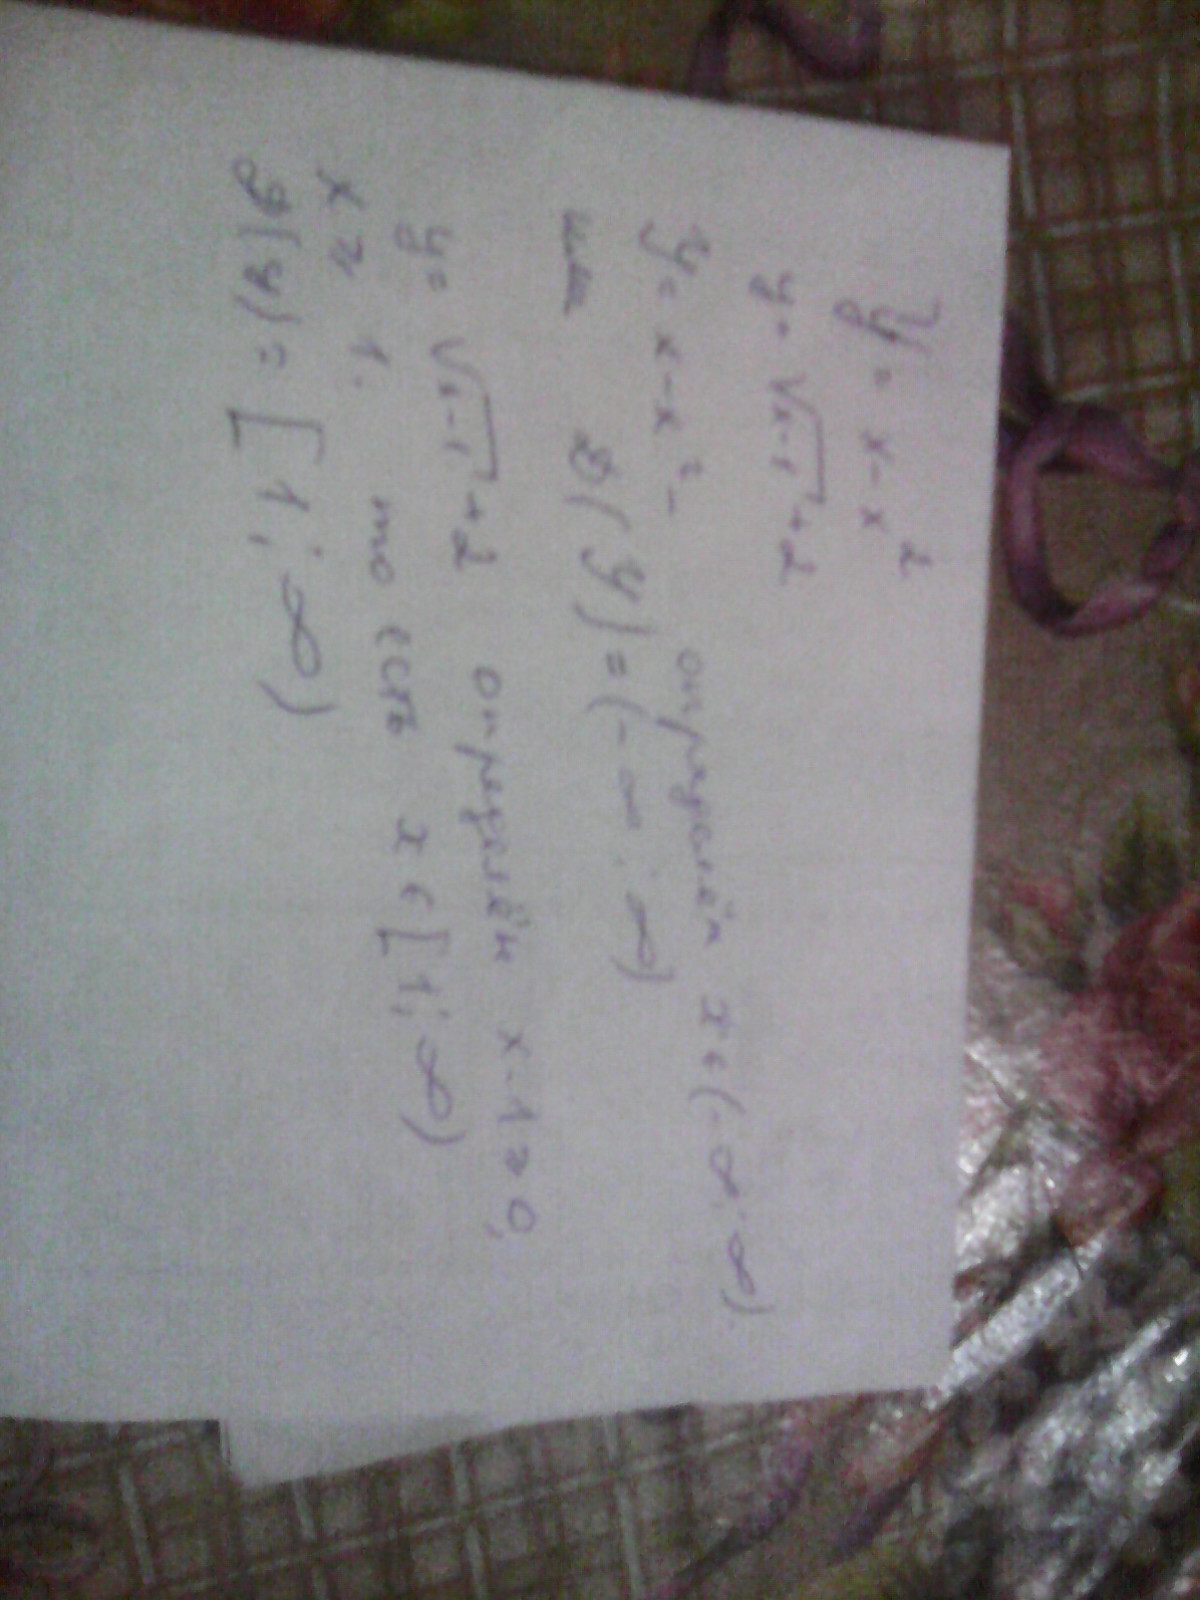 y = x - x²
y = √x-1 + 2
y = x - x² - определён x ∈ (-∞; ∞)
или D(y) = (-∞; ∞)
y = √x-1 + 2 определён x-1 ≥ 0,
x ≥ 1. то есть x ∈ [1; ∞)
D(y) = [1; ∞)